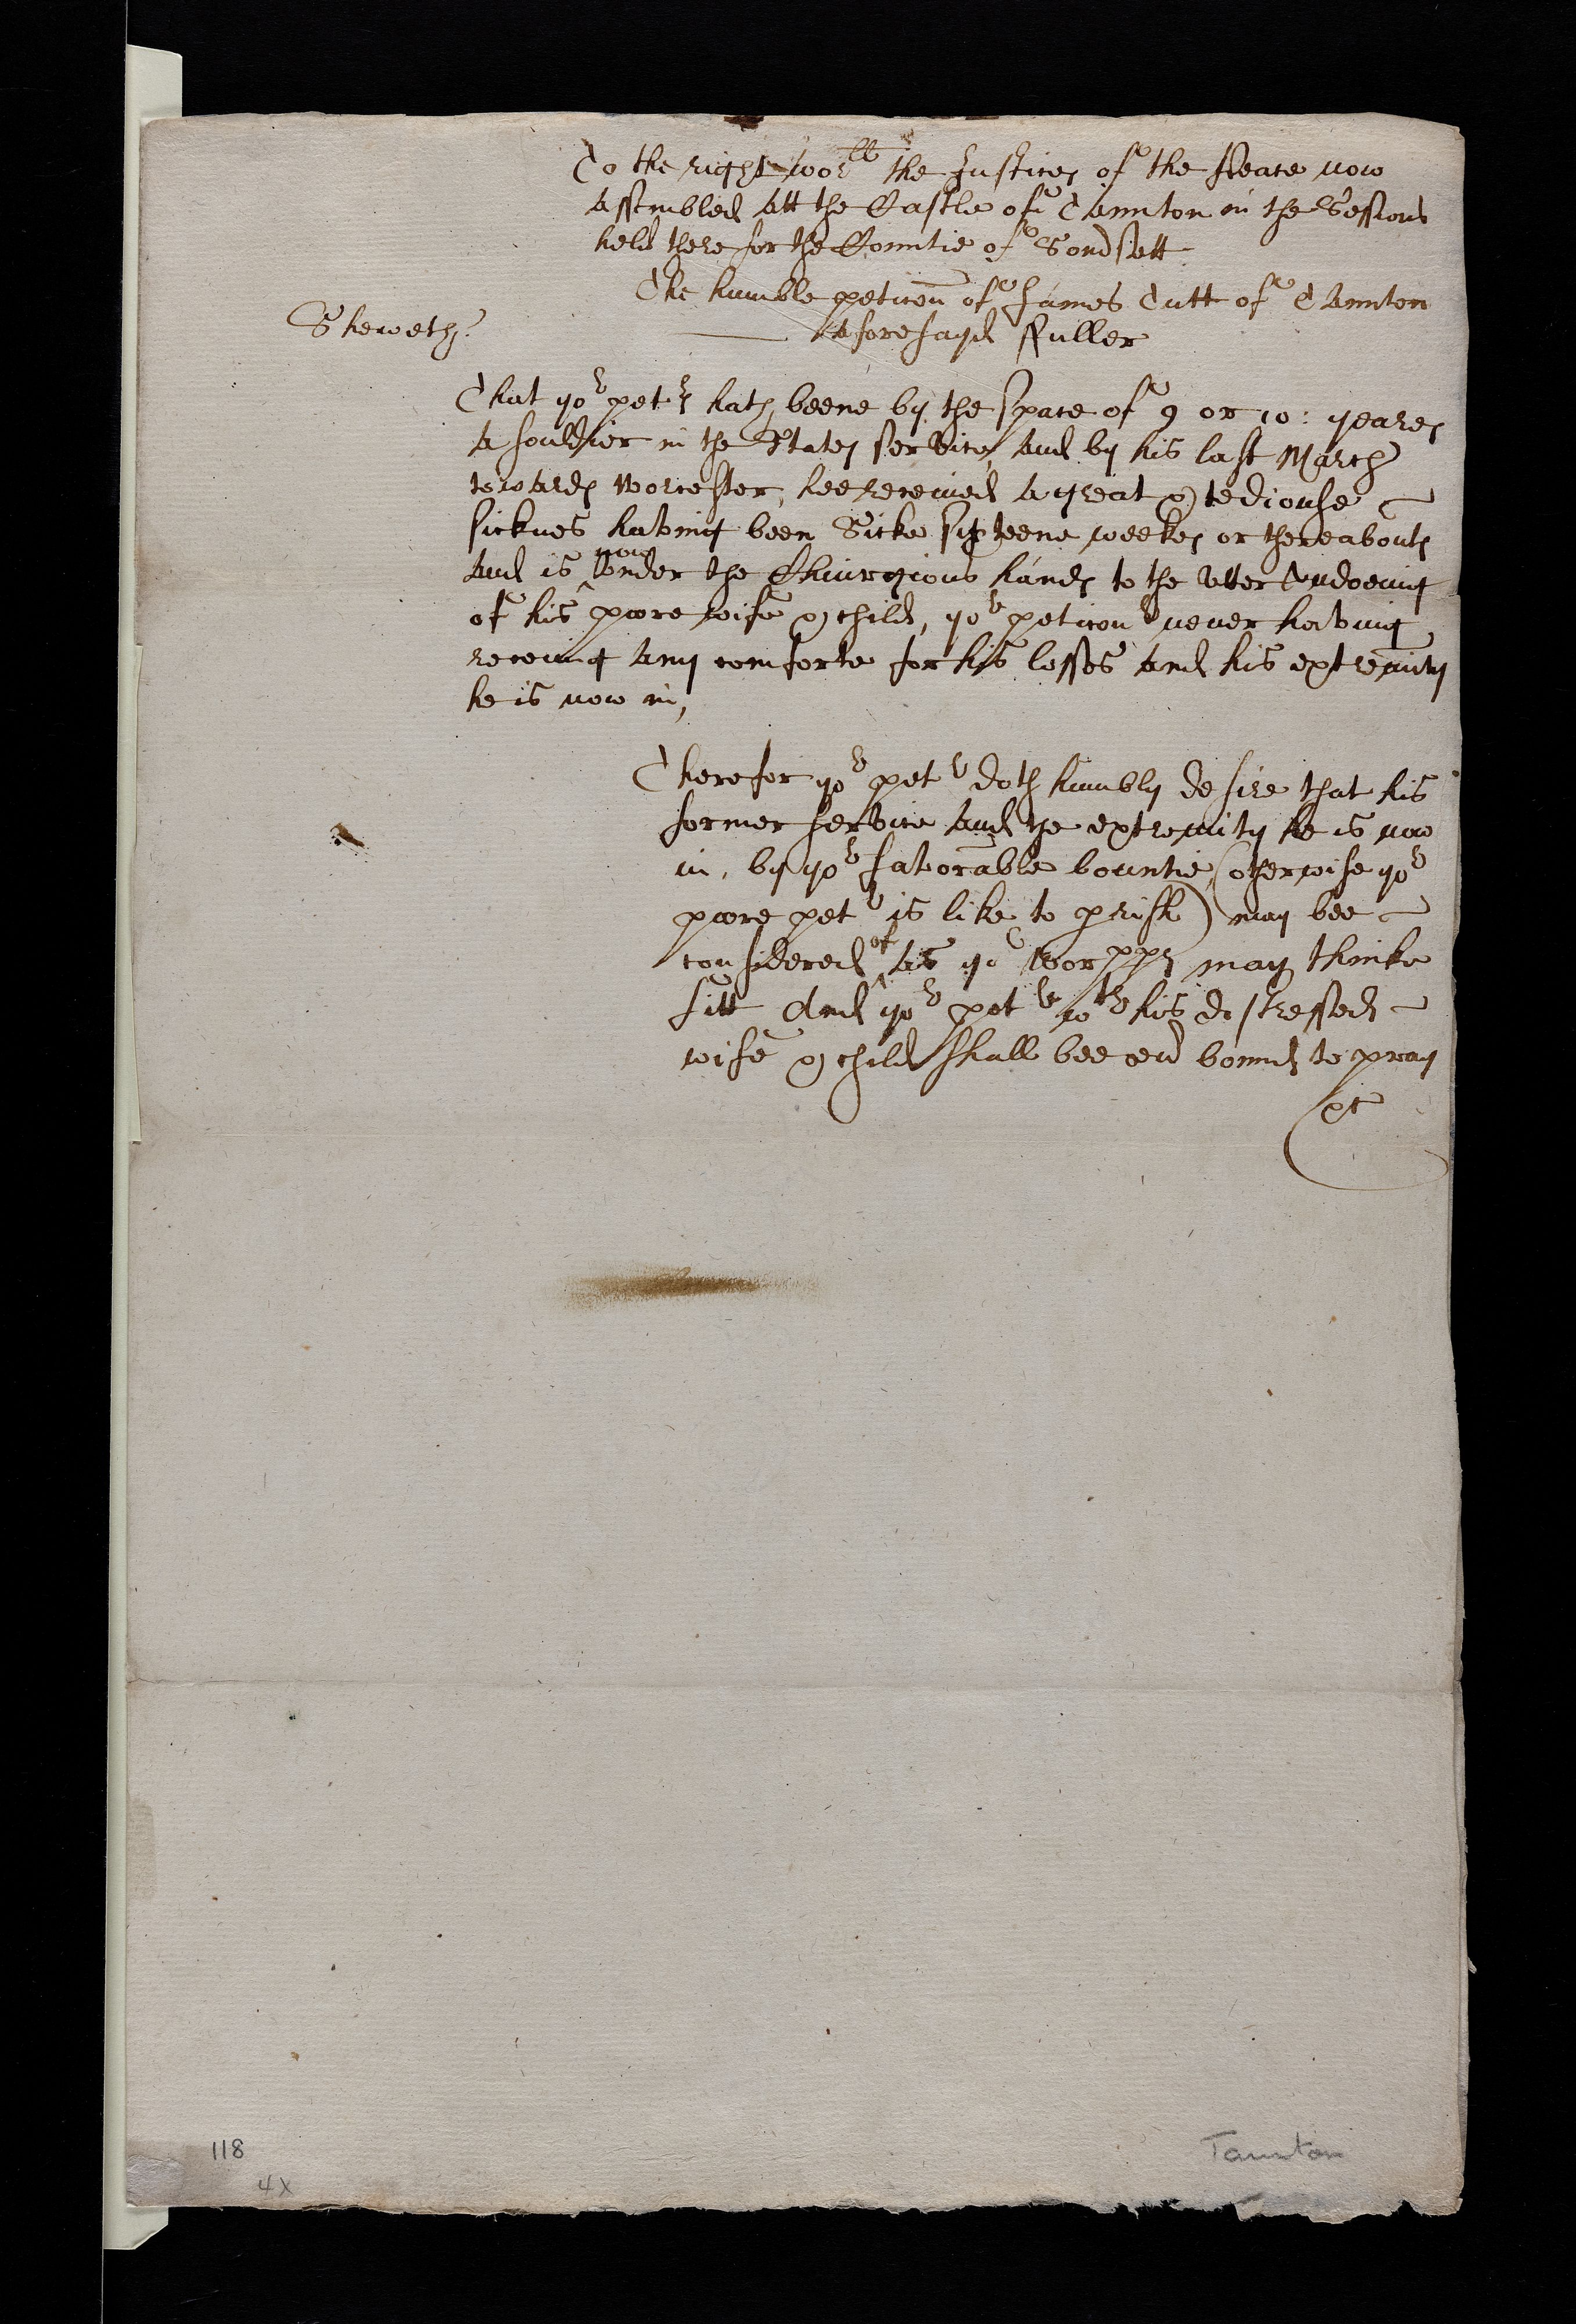 To the right wor:ll the Justices of the Peace now
Assembled Att the Castle of Taunton in the Sessions
held there for the Countie of Somersett
The humble peticon of James Cutt of Taunton
Sheweth
aforesayd Fuller
That yor petr hath beene by the space of 9 or 10: yeares
A souldier in the States service, And by his last March
towards Worcester, hee receiued A great & tediouse
sicknes having been Sicke sixteene weekes or thereabouts
And is now Vnder the Chiurgions hands to the Vtter Vndoeing
of his poore wife & child, yor peticonr neuer having
receiuing Any comforte for his losses And his extremity
he is now in,
Therefor yor petr doth humbly desire that his
former service And the extremity he is now
in, by yor favorable bountie, (otherwise yor
poore petr is like to perish) may bee
considered of As yor Worpps may thinke
fitt And yor petr wth his destressed
wife & child shall bee ever bound to pray
&c
118
4X
Taunton